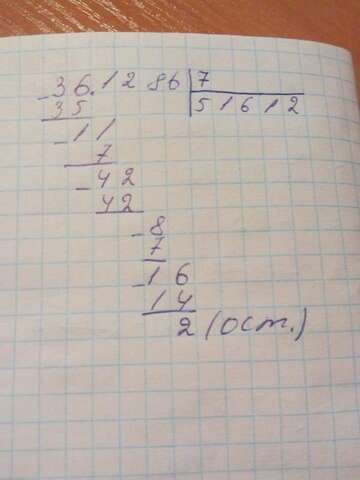 36.12 86 7
35 51612
-11
7
-42
42
-8
7
-16
14
2 (ост.)